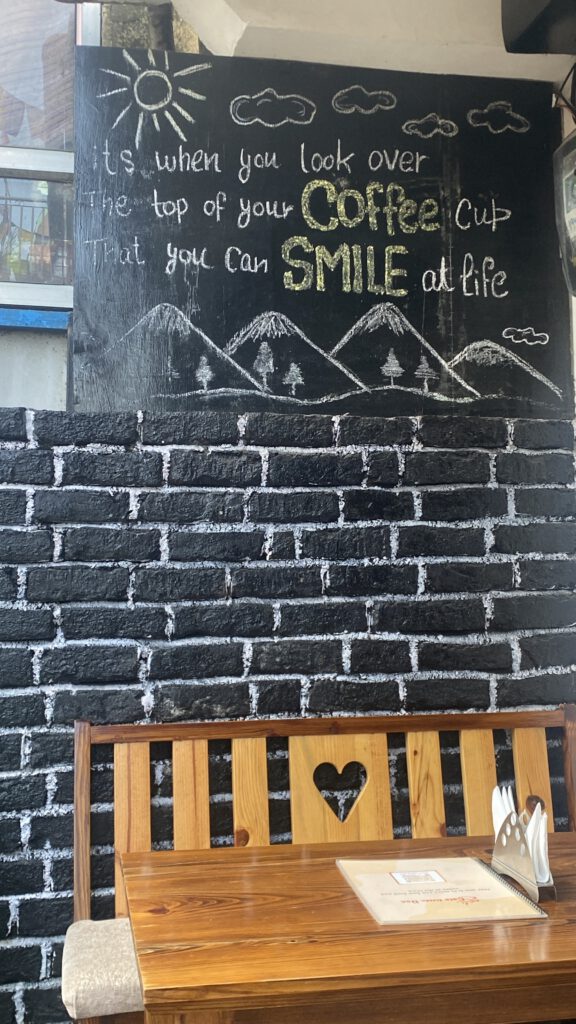 its when you look over
The top of your Coffee Cup
That you can SMILE at life